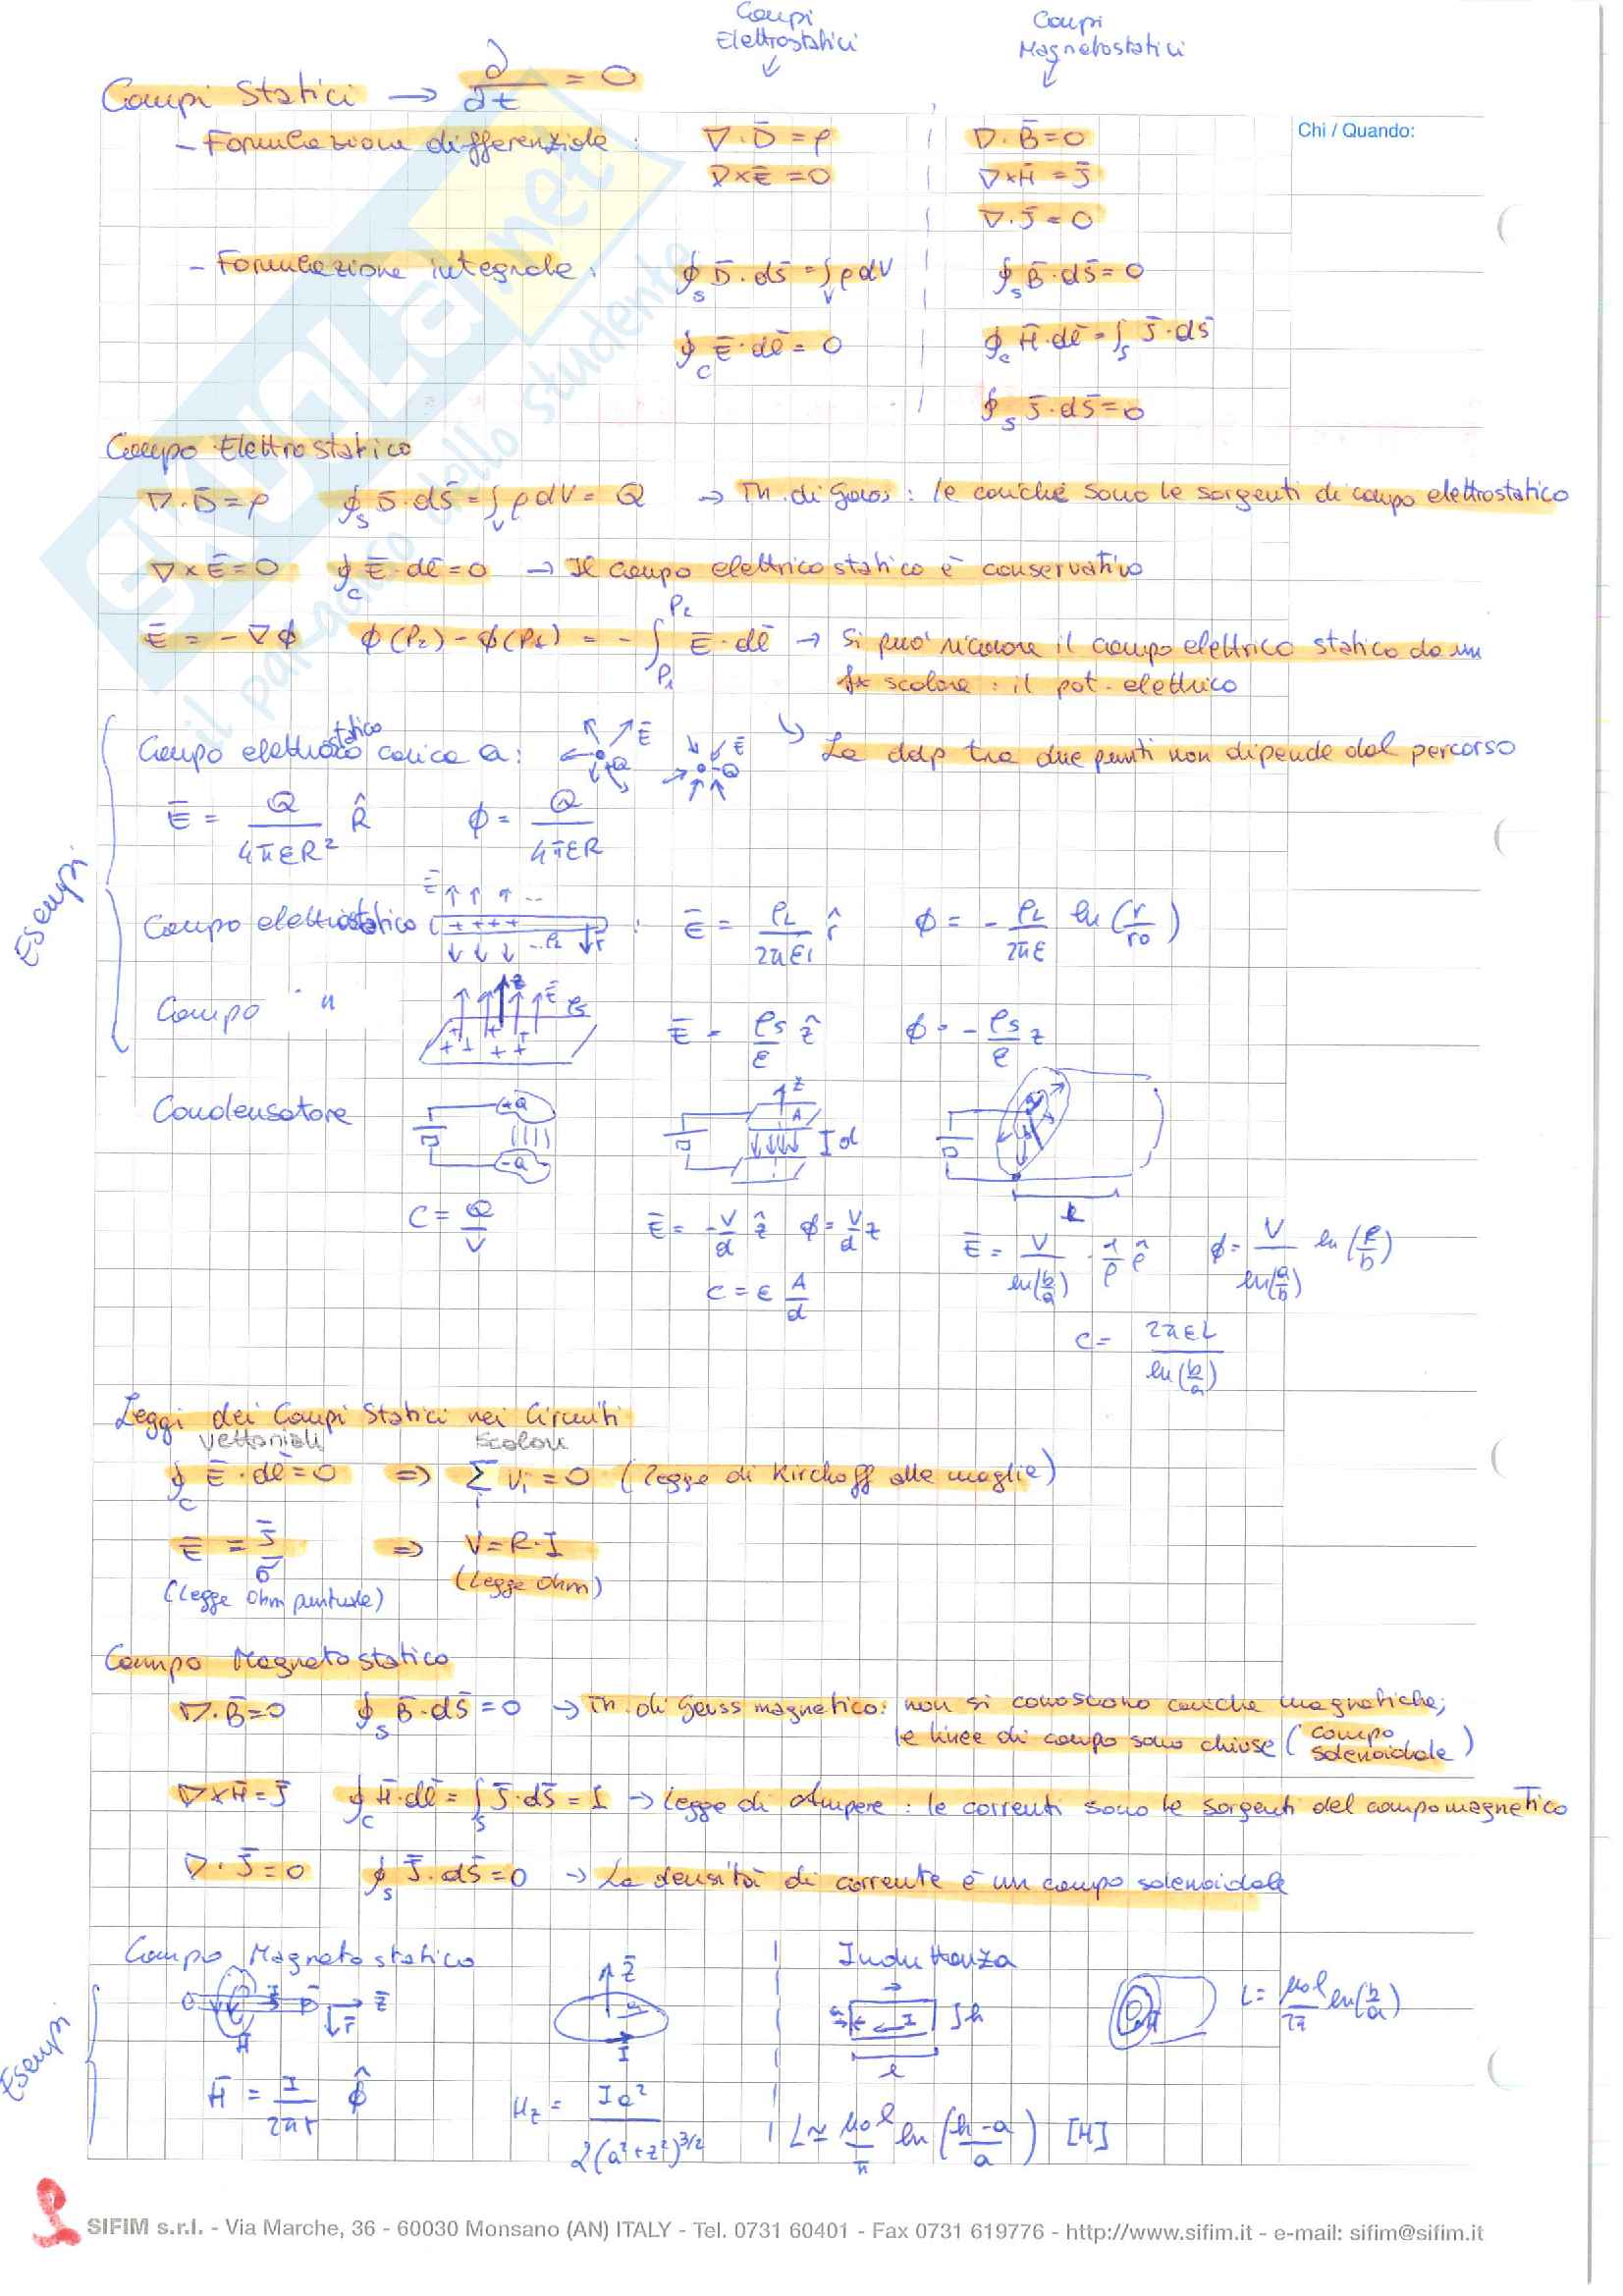 Campi Elettrostatici
Campi Magnetostatici
Campi Statici → ∂/∂t = 0
Chi / Quando:
- Formulazione differenziale : ∇·D̄ = ρ | ∇·B̄=0
∇×Ē =0 | ∇×H̄ = J̄
| ∇·J̄ = 0
- Formulazione integrale : ∮_S D̄·ds̄ = ∫_V ρdV | ∮_S B̄·ds̄=0
∮_C Ē·dl̄ = 0 | ∮_C H̄·dl̄ = ∫_S J̄·ds̄
| ∮_S J̄·ds̄=0
Campo Elettrostatico
∇·D̄=ρ ∮_S D̄·ds̄ = ∫_V ρdV = Q → Th. di Gauss : le cariche sono le sorgenti di campo elettrostatico
∇×Ē=0 ∮_C Ē·dl̄=0 → Il campo elettrico statico è conservativo
Ē = -∇ϕ ϕ(P₂) - ϕ(P₁) = -∫_P₁^P₂ Ē·dl̄ → Si puo' ricavare il campo elettrico statico da un
fx scalare : il pot. elettrico
↳ La ddp tra due punti non dipende dal percorso
Esempi
Campo elettrostatico carica Q : +Q Ē -Q Ē
Ē = Q/(4πεR²) R̂ ϕ = Q/(4πεR)
Campo elettrostatico Ē ++++ ρL r̄ : Ē = ρL/(2πεr) r̂ ϕ = - ρL/(2πε) ln(r/r₀)
Campo " z Ē ρs Ē = ρs/ε ẑ ϕ = - ρs/ε z
Condensatore +Q -Q z A d
C = Q/V Ē = -V/d ẑ ϕ = V/d z Ē = V/ln(b/a) · 1/ρ ρ̂ ϕ = V/ln(a/b) ln(ρ/b)
C = ε A/d
C = 2πεL/ln(b/a)
Leggi dei Campi Statici nei Circuiti
Vettoriali Scalari
∮_C Ē·dl̄=0 ⇒ Σ_i Vi = 0 (legge di Kirchoff alle maglie)
Ē = J̄/σ ⇒ V=R·I
(Legge Ohm puntuale) (Legge Ohm)
Campo Magnetostatico
∇·B̄=0 ∮_S B̄·ds̄=0 → Th. di Gauss magnetico: non si conoscono cariche magnetiche;
le linee di campo sono chiuse (campo solenoidale)
∇×H̄=J̄ ∮_C H̄·dl̄ = ∫_S J̄·ds̄ = I → Legge di Ampere : le correnti sono le sorgenti del campo magnetico
∇·J̄=0 ∮_S J̄·ds̄=0 → La densità di corrente è un campo solenoidale
Esempi
Campo Magnetostatico | Induttanza
I z̄ r̄ H̄ z̄ a I | a I h l H L = μ₀l/2π ln(b/a)
H̄ = I/(2πr) ϕ̂ Hz = Ia²/(2(a²+z²)^3/2) | L ≃ μ₀l/π ln((h-a)/a) [H]
SKUOLA.net
il paradiso dello studente
SIFIM s.r.l. - Via Marche, 36 - 60030 Monsano (AN) ITALY - Tel. 0731 60401 - Fax 0731 619776 - http://www.sifim.it - e-mail: sifim@sifim.it